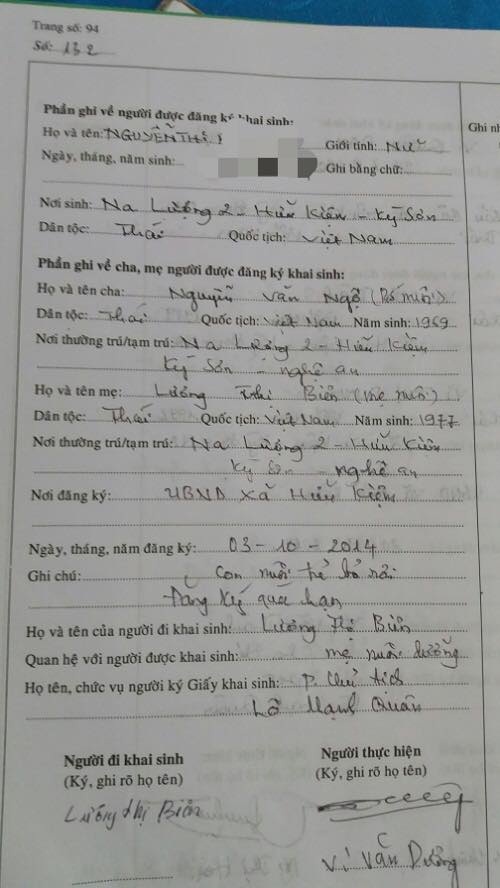 Trang số: 94
Số: 132
Phần ghi về người được đăng ký khai sinh:
Họ và tên: NGUYỄN THỊ
Giới tính: Nữ
Ngày, tháng, năm sinh:
Ghi bằng chữ:
Nơi sinh: Na Lượng 2 - Hữu Kiệm - Kỳ Sơn
Dân tộc: Thái Quốc tịch: Việt Nam
Phần ghi về cha, mẹ người được đăng ký khai sinh:
Họ và tên cha: Nguyễn Văn Ngộ (Bố nuôi)
Dân tộc: Thái Quốc tịch: Việt Nam Năm sinh: 1969
Nơi thường trú/tạm trú: Na Lượng 2 - Hữu Kiệm
Kỳ Sơn - nghệ an
Họ và tên mẹ: Lương Thị Biên (mẹ nuôi)
Dân tộc: Thái Quốc tịch: Việt Nam Năm sinh: 1977
Nơi thường trú/tạm trú: Na Lượng 2 - Hữu Kiệm
Kỳ Sơn - nghệ an
Nơi đăng ký: UBND xã Hữu Kiệm
Ngày, tháng, năm đăng ký: 03-10-2014
Ghi chú: Con nuôi trẻ bỏ rơi
Đăng Ký quá hạn
Họ và tên của người đi khai sinh: Lương Thị Biên
Quan hệ với người được khai sinh: mẹ nuôi dưỡng
Họ tên, chức vụ người ký Giấy khai sinh: P. Chủ tịch
Lô Mạnh Quân
Người đi khai sinh
(Ký, ghi rõ họ tên)
Lương thị Biên
Người thực hiện
(Ký, ghi rõ họ tên)
Vi Văn Dưỡng
Ghi